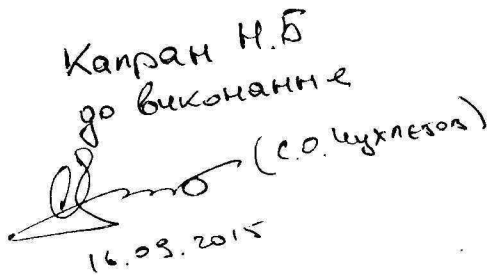 Капран Н.Б
до виконанне
(С.О. Чухлебов)
16.09.2015